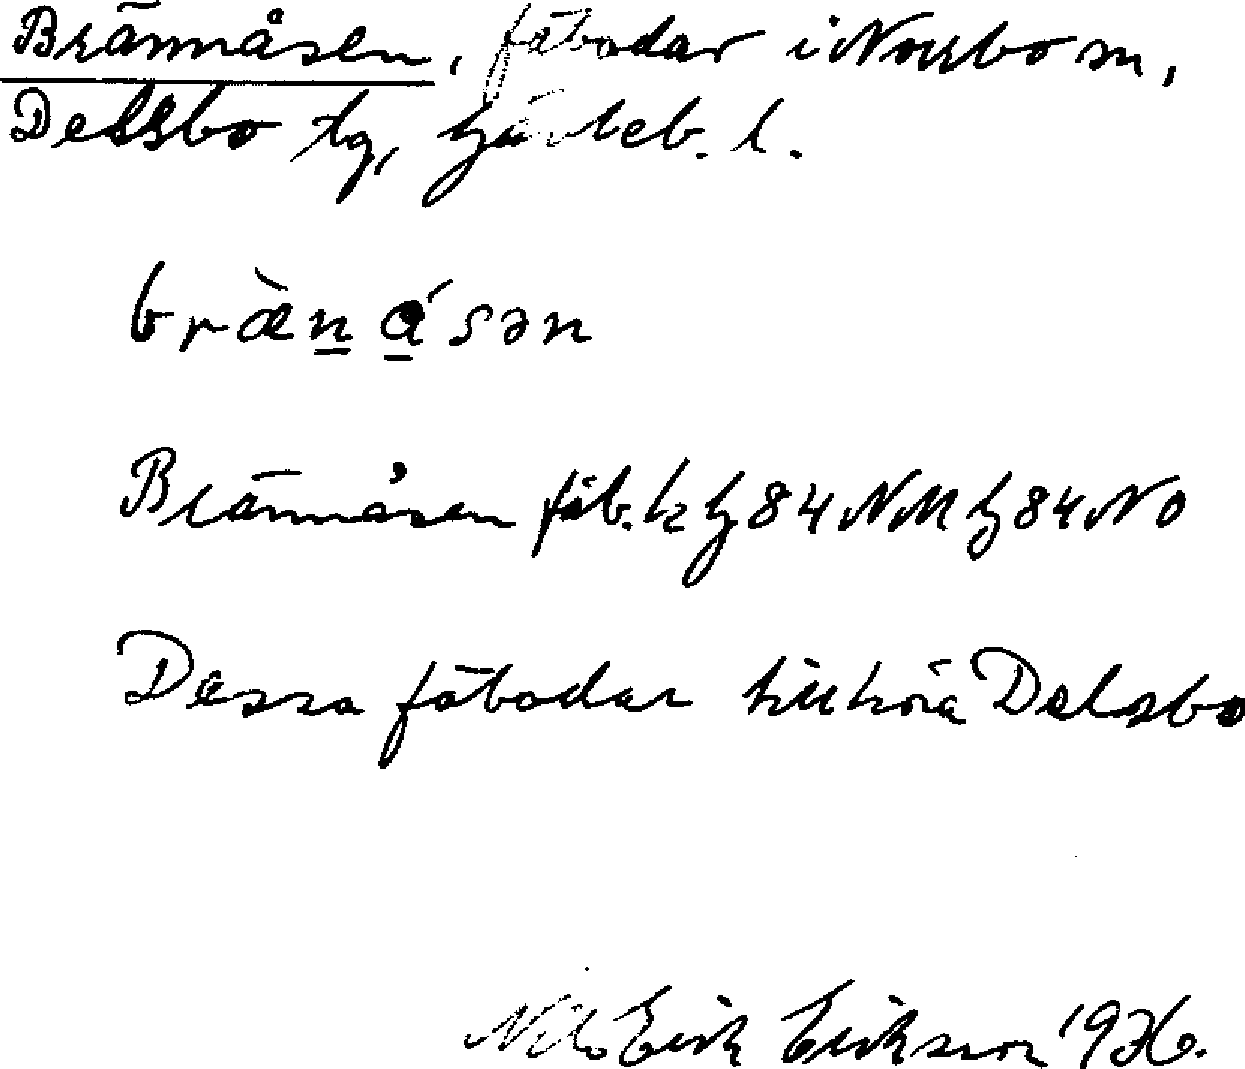 Brännåsen, fäbodar i Norrbo sn,
Delsbo tg, Gävleb. l.
bræ̀n̲ á̲sən
Brännåsen fäb. k h 84 NM h 84 NO
Dessa fäbodar tillhöra Delsbo
Nils Erik Eriksson 1936.